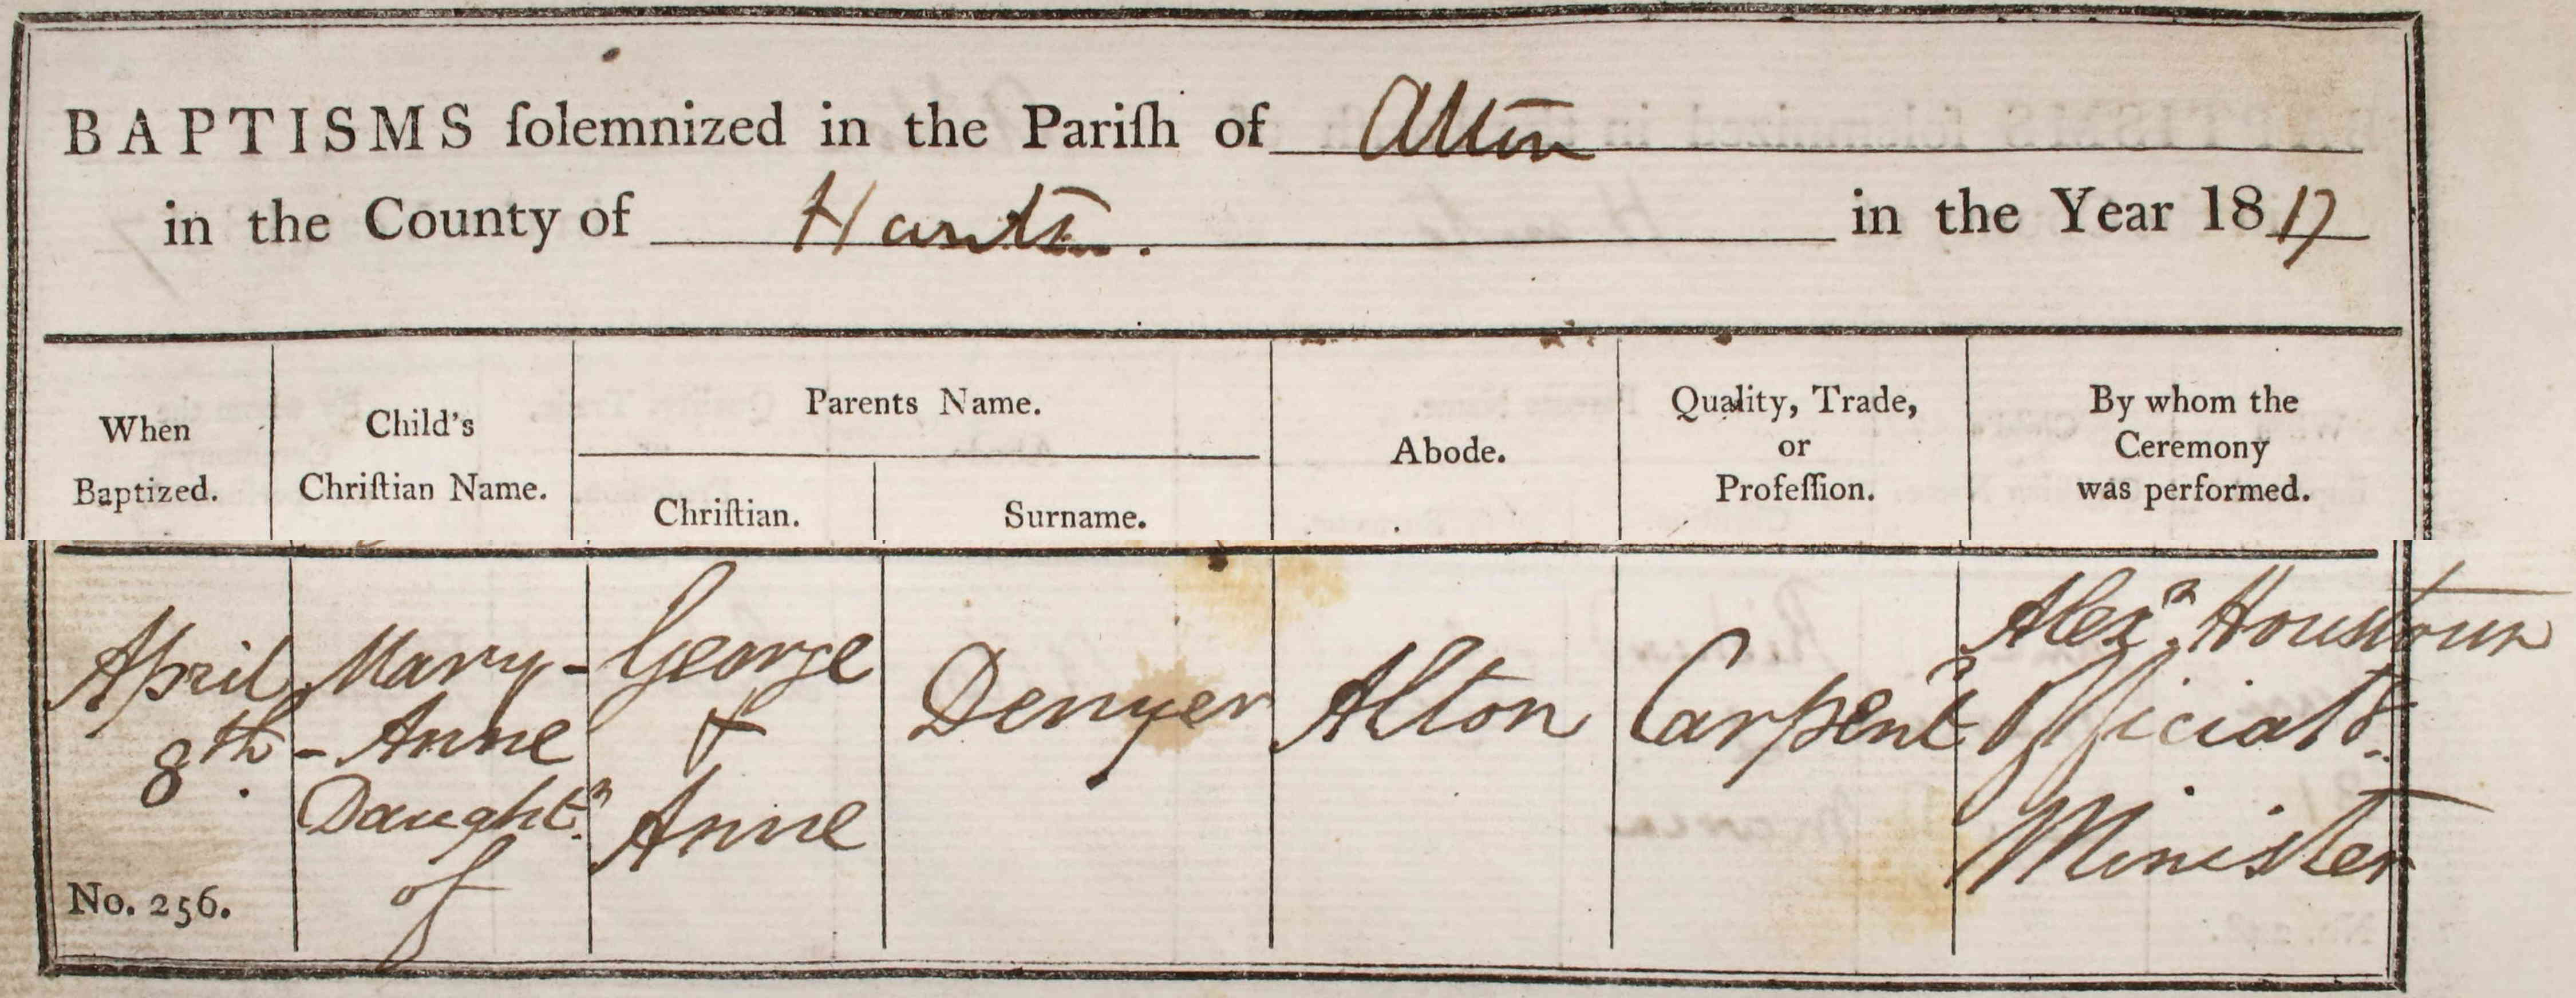 BAPTISMS ſolemnized in the Pariſh of Alton
in the County of Hants. in the Year 1817
When
Baptized.
Child's
Chriſtian Name.
Parents Name.
Chriſtian.
Surname.
Abode.
Quality, Trade,
or
Profeſſion.
By whom the
Ceremony
was performed.
April
8th.
No. 256.
Mary-
-Anne
Daught.r
of
George
&
Anne
Denyer
Alton
Carpent.r
Alex.r Houstoun
Officiat.g
Minister